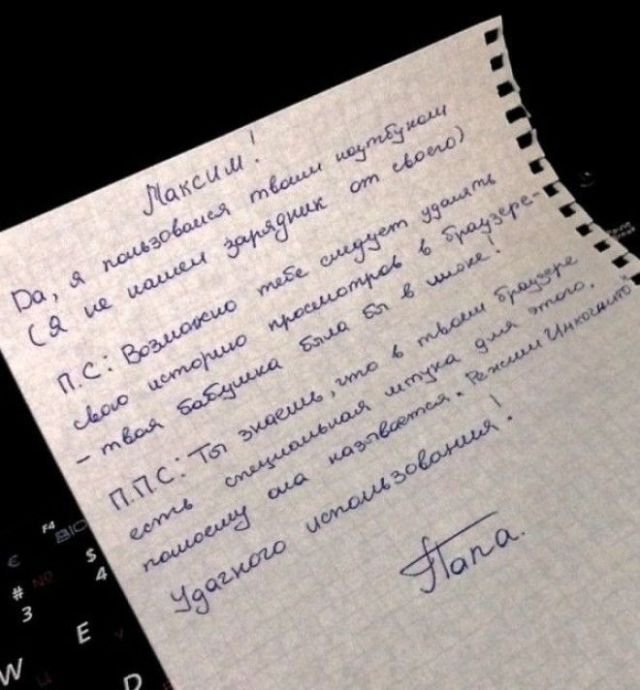 Максим!
Да, я пользовался твоим ноутбуком
(я не нашел зарядник от своего)
П.С: Возможно тебе следует удалять
свою историю просмотров в браузере-
- твоя бабушка была бы в шоке!
П.П.С: Ты знаешь, что в твоем браузере
есть специальная штука для этого,
помоему она называется "Режим Инкогнито"
Удачного использования!
Папа.
F4
€
$
4
#
3
E
W
D